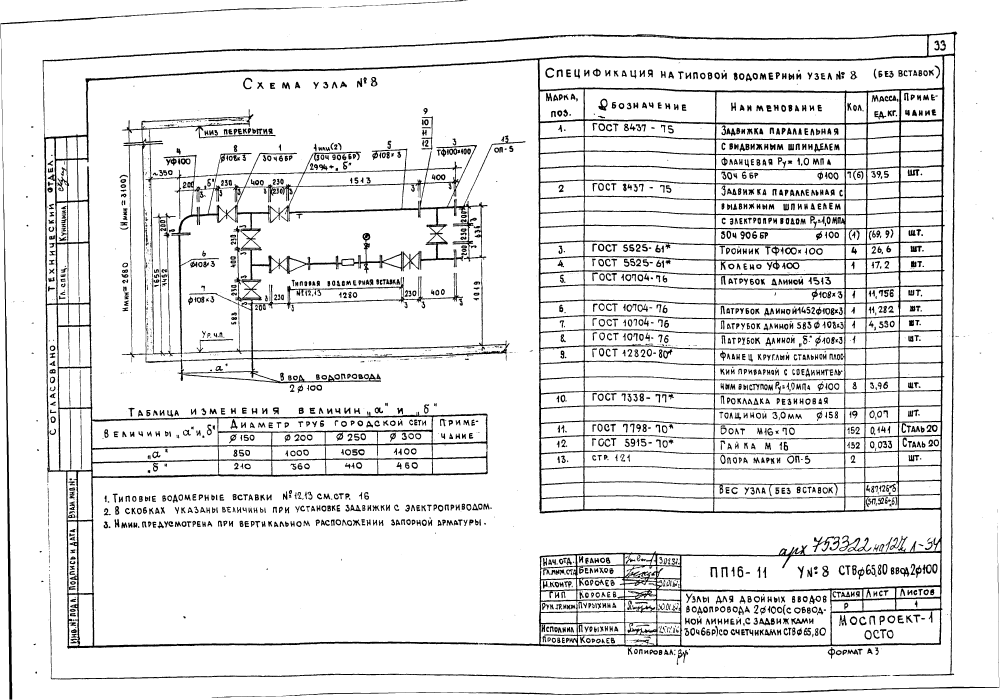 33
Схема узла №8
Низ перекрытия
4
УФ100
8
ϕ108×3
1
30ч6БР
1 или (2)
(30ч 906 БР)
2994+„б"
5
ϕ108×3
9
10
11
12
3
ТФ100×100
13
ОП-5
~350
200
„б"
230
400
230
(230)
1513
400
(Hмин = 3100)
Hмин = 2680
1655
1452
6
ϕ108×3
7
ϕ108×3
Типовая водомерная вставка
№12,13
1280
200
230
230
400
583
1049
Ур. ч.п.
„а"
Ввод водопровода
2ϕ100
Таблица изменения величин „а" и „б"
Величины „а" и „б"
Диаметр труб городской сети
Примечание
ϕ150 ϕ200 ϕ250 ϕ300
„а" 850 1000 1050 1100
„б" 210 360 410 460
1. Типовые водомерные вставки №12,13 см. стр. 16
2. В скобках указаны величины при установке задвижки с электроприводом.
3. Hмин. предусмотрена при вертикальном расположении запорной арматуры.
Спецификация на типовой водомерный узел № 8 (без вставок)
Марка, поз. Обозначение Наименование Кол. Масса, ед. кг. Примечание
1. ГОСТ 8437-75 Задвижка параллельная
с выдвижным шпинделем
фланцевая Ру=1,0 МПа
30ч 6 БР ϕ100 7(6) 39,5 шт.
2 ГОСТ 8437-75 Задвижка параллельная с
выдвижным шпинделем
с электроприводом Ру=1,0МПа
30ч 906 БР ϕ100 (1) (69,9) шт.
3. ГОСТ 5525-61* Тройник ТФ100×100 4 26,6 шт.
4. ГОСТ 5525-61* Колено УФ100 1 17,2 шт.
5. ГОСТ 10704-76 Патрубок длиной 1513
ϕ108×3 1 11,756 шт.
6. ГОСТ 10704-76 Патрубок длиной 1452 ϕ108×3 1 11,282 шт.
7. ГОСТ 10704-76 Патрубок длиной 583 ϕ108×3 1 4,530 шт.
8. ГОСТ 10704-76 Патрубок длиной „б" ϕ108×3 1 шт.
9. ГОСТ 12820-80* Фланец круглый стальной плос-
кий приварной с соединитель-
ным выступом Ру=1,0МПа ϕ100 8 3,96 шт.
10. ГОСТ 7338-77* Прокладка резиновая
толщиной 3,0мм ϕ158 19 0,07 шт.
11. ГОСТ 7798-70* Болт М16×70 152 0,141 Сталь 20
12. ГОСТ 5915-70* Гайка М 16 152 0,033 Сталь 20
13. стр. 121 Опора марки ОП-5 2 шт.
Вес узла (без вставок) 487,126+б
(517,526+б)
арх 753322 на 127 л-34
Нач. отд. Иванов
Гл.инж.отд Белихов
Н.контр. Королев
ГИП Королев
Рук.гр.инж. Пурыхина
Исполнил Пурыхина
Проверил Королев
ПП16-11 У №8 СТВϕ65,80 ввод 2ϕ100
Узлы для двойных вводов
водопровода 2ϕ100 (с обвод-
ной линией, с задвижками
30ч6БР) со счетчиками СТВϕ65,80
Стадия Лист Листов
Р 1
Моспроект-1
ОСТО
Копировал:
Формат А3
Согласовано:
Технический отдел
Гл. спец. Куницина
Взам. инв. №
Подпись и дата
Инв. № подл.